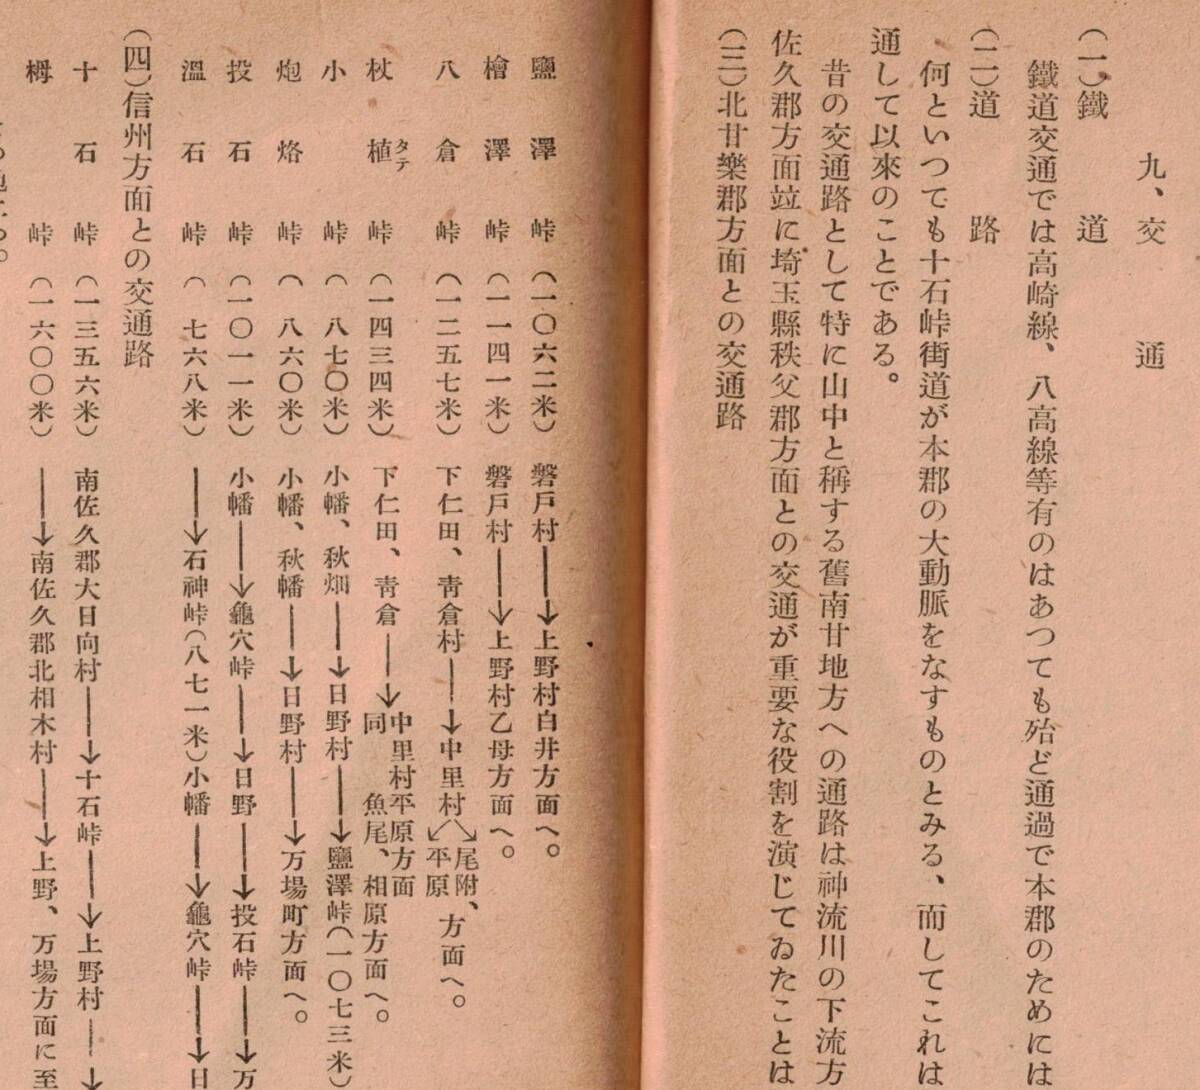 九、交通
(一)鐵道
鐵道交通では高崎線、八高線等有のはあつても殆ど通過で本郡のためには
(二)道路
何といつても十石峠街道が本郡の大動脈をなすものとみる、而してこれは
通して以來のことである。
昔の交通路として特に山中と稱する舊南甘地方への通路は神流川の下流方
佐久郡方面竝に埼玉縣秩父郡方面との交通が重要な役割を演じてゐたことは
(三)北甘樂郡方面との交通路
鹽澤峠(一〇六二米) 磐戸村―→上野村白井方面へ。
檜澤峠(一一四一米) 磐戸村―→上野村乙母方面へ。
八倉峠(一二五七米) 下仁田、靑倉村―→中里村 尾附、平原 方面へ。
杖植タテ峠(一四三四米) 下仁田、靑倉―→中里村平原方面 同魚尾、相原方面へ。
小峠(八七〇米) 小幡、秋畑―→日野村―→鹽澤峠(一〇七三米)
炮烙峠(八六〇米) 小幡、秋幡―→日野村―→万場町方面へ。
投石峠(一〇一一米) 小幡―→龜穴峠―→日野―→投石峠―→万
溫石峠(七六八米) ―→石神峠(八七一米)小幡―→龜穴峠―→日
(四)信州方面との交通路
十石峠(一三五六米) 南佐久郡大日向村―→十石峠―→上野村―→
栂峠(一六〇〇米) ―→南佐久郡北相木村―→上野、万場方面に至